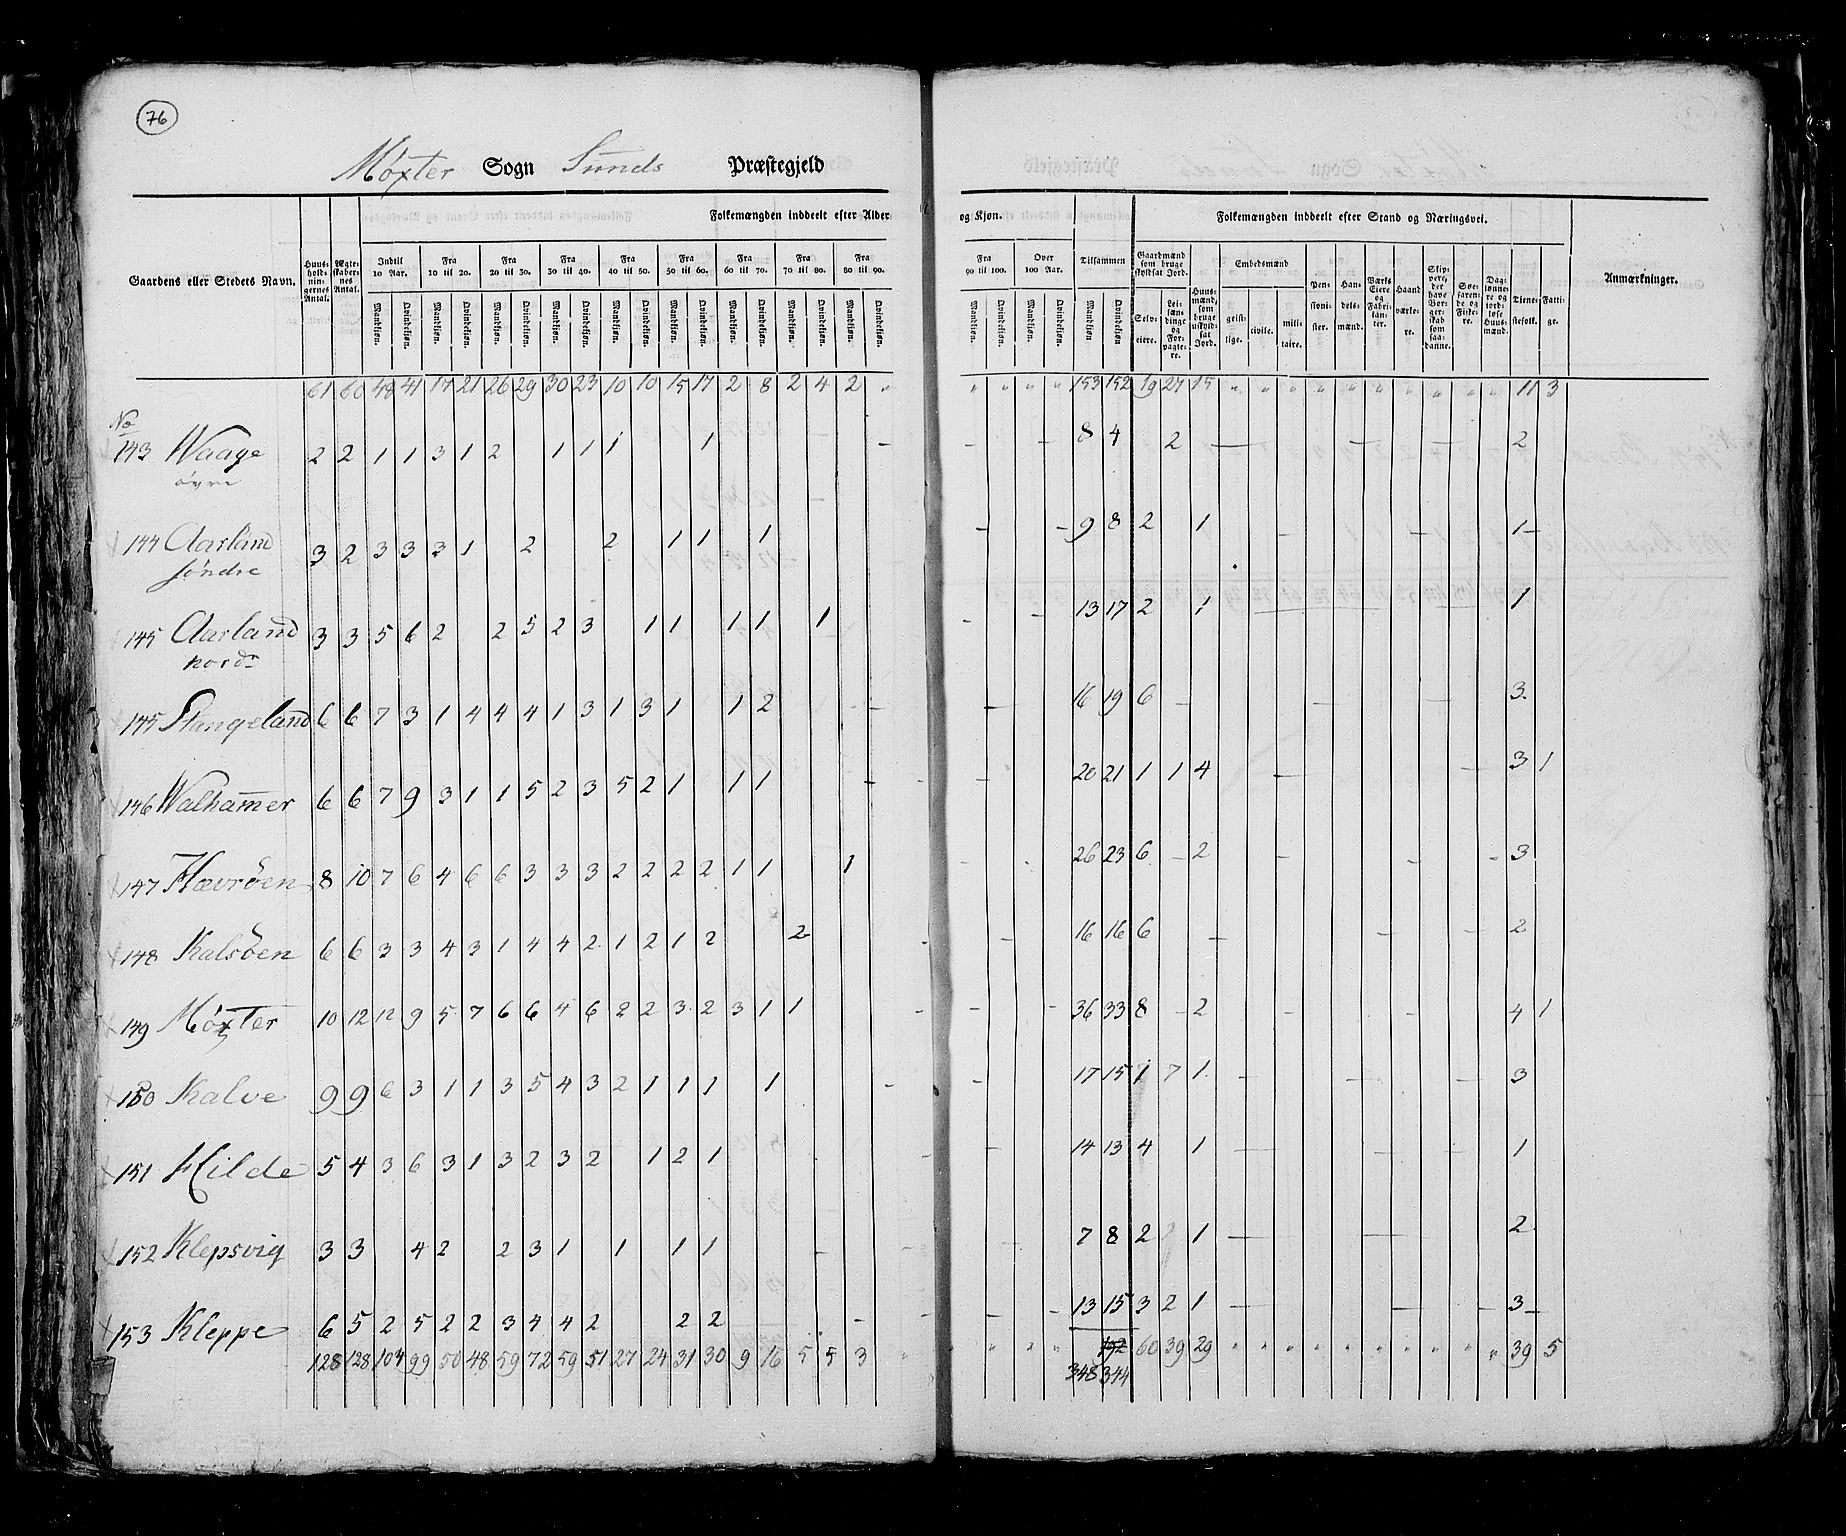 76
Møxter Sogn Sunds Præstegjeld
Folkemængden inddeelt efter Alder og Kjøn. Folkemængden inddeelt efter Stand og Næringsvei.
Gaardens eller Stedets Navn. Huus-hold-nin-gernes Antal. Ægte-skaber-nes Antal. Indtil 10 Aar. Fra 10 til 20. Fra 20 til 30. Fra 30 til 40. Fra 40 til 50. Fra 50 til 60. Fra 60 til 70. Fra 70 til 80. Fra 80 til 90. Fra 90 til 100. Over 100 Aar. Tilsammen Gaardmænd som bruge skyldsat Jord. Huus-mænd, som bruge uskyld-sat Jord. Embedsmænd Pen-sioni-ster. Han-dels-mænd. Værks Eiere og Fabri-kan-ter. Haand værke-re. Skip-pere, der have Bor-ger-skab som saa-danne. Søe-faren-de og Fiske-re. Dag-lønne-re og jord-løse Huus-mænd. Tiene-stefolk. Fatti-ge. Anmærkninger.
Mandkjøn. Qvindekjøn. Mandkjøn. Qvindekjøn. Mandkjøn. Qvindekjøn. Mandkjøn. Qvindekjøn. Mandkjøn. Qvindekjøn. Mandkjøn. Qvindekjøn. Mandkjøn. Qvindekjøn. Mandkjøn. Qvindekjøn. Mandkjøn. Qvindekjøn. Mandkjøn. Qvindekjøn. Mandkjøn. Qvindekjøn. Mandkjøn. Qvindekjøn. Selv-eiere. Lei-læn-dinge og For-pagte-re. geist-lige. civile. mili-taire.
61 60 48 41 17 21 26 29 30 23 10 10 15 17 2 8 2 4 2 " " " " " 153 152 19 27 15 " " " " " " " " " " 11 3
No
143 Waage 2 2 1 1 3 1 2 1 1 1 1 - - - 8 4 2 - - - 2
øvre
144 Aarland 3 2 3 3 3 1 2 2 1 1 1 - - 9 8 2 1 - - - 1 -
søndre
145 Aarland 3 3 5 6 2 2 5 2 3 1 1 1 1 1 - - 13 17 2 1 - 1
nordr
145 Stangeland 6 6 7 3 1 4 4 4 1 3 1 3 1 1 2 - - - 16 19 6 - - - 3
146 Walhammer 6 6 7 9 3 1 1 5 2 3 5 2 1 1 1 - - 20 21 1 1 4 - - 3 1
147 Hævrøen 8 10 7 6 4 6 6 3 3 3 2 2 2 2 1 1 1 - 26 23 6 - 2 - - - 3
148 Kalsøen 6 6 3 3 4 3 1 4 4 2 1 2 1 2 2 - - 16 16 6 - - - 2
149 Møxter 10 12 12 9 5 7 6 6 4 6 2 2 3 2 3 1 1 - - 36 33 8 - 2 - - 4 1
150 Kalve 9 9 6 3 1 1 3 5 4 3 2 1 1 1 1 - - 17 15 1 7 1 - - - 3
151 Hilde 5 4 3 6 3 1 3 2 3 2 1 2 1 - 14 13 4 1 - - - 1
152 Klepsvig 3 3 4 2 2 3 1 1 1 1 - - 7 8 2 1 - - 2
153 Kleppe 6 5 2 5 2 2 3 4 4 2 2 2 - - - - 13 15 3 2 1 - - - 3 -
128 128 104 99 50 48 59 72 59 51 27 24 31 30 9 16 5 5 3 " " " " " 192 60 39 29 " " " " " " " " " " 39 5
348 344